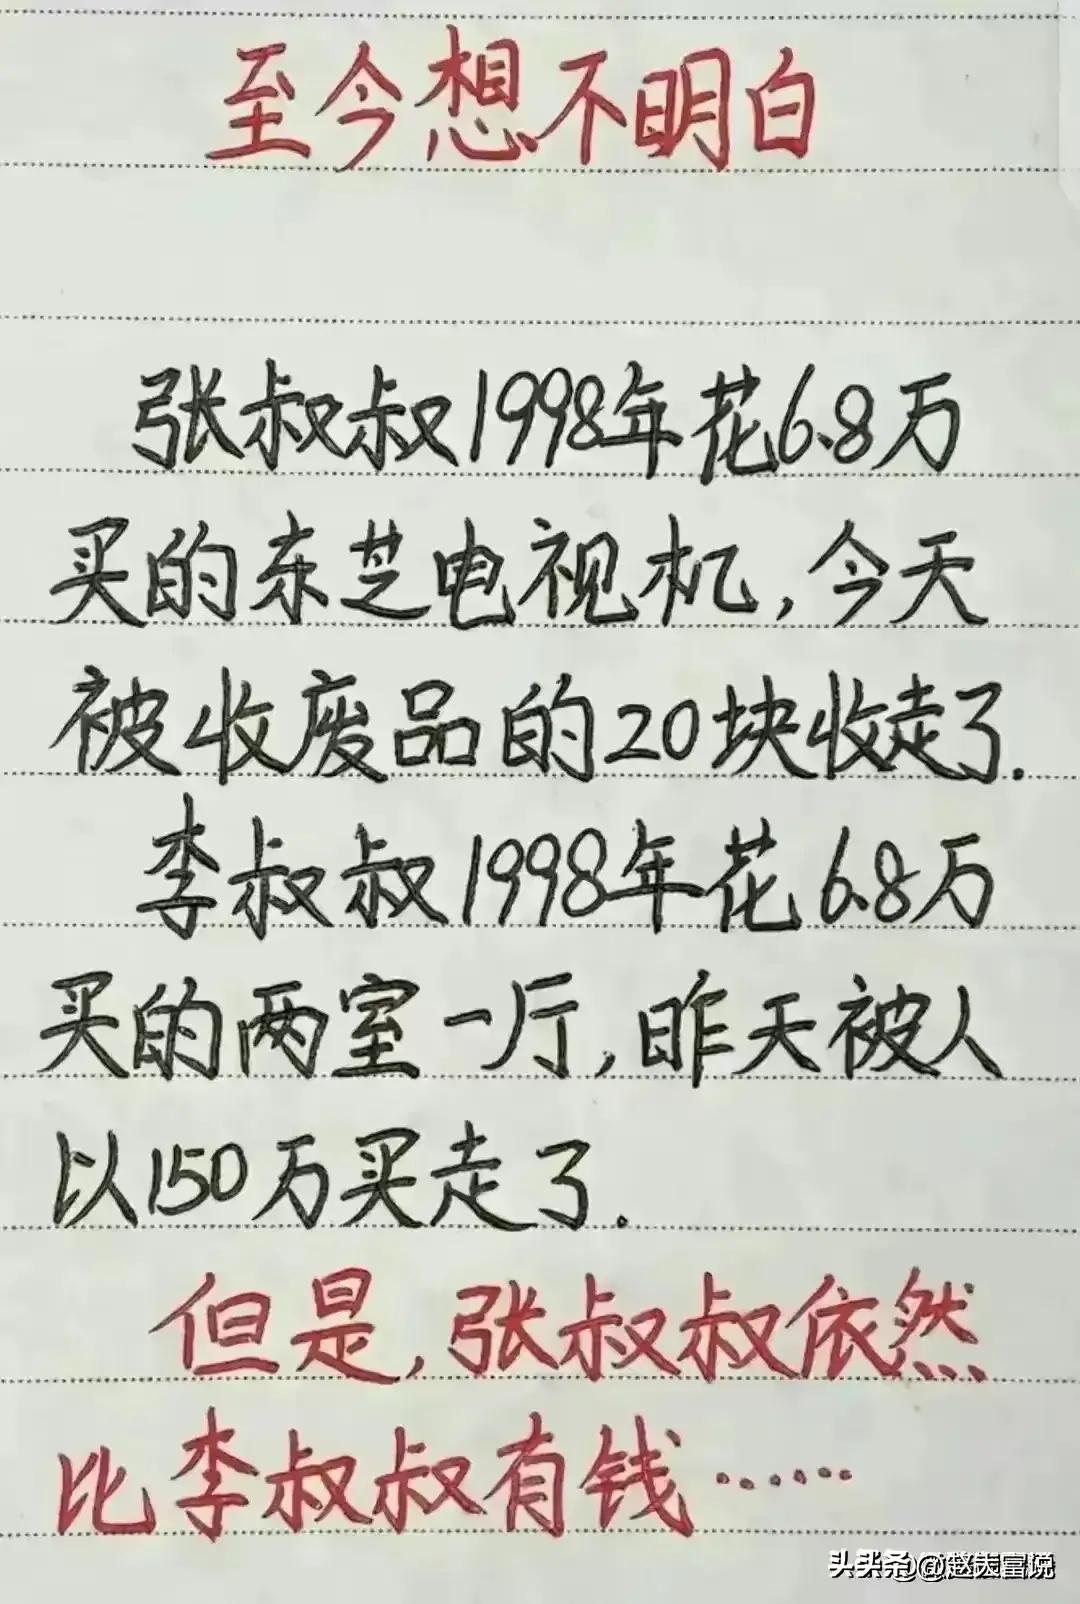 至今想不明白
张叔叔1998年花6.8万
买的东芝电视机,今天
被收废品的20块收走了.
李叔叔1998年花6.8万
买的两室一厅,昨天被人
以150万买走了.
但是,张叔叔依然
比李叔叔有钱……
头条@赵夫富说